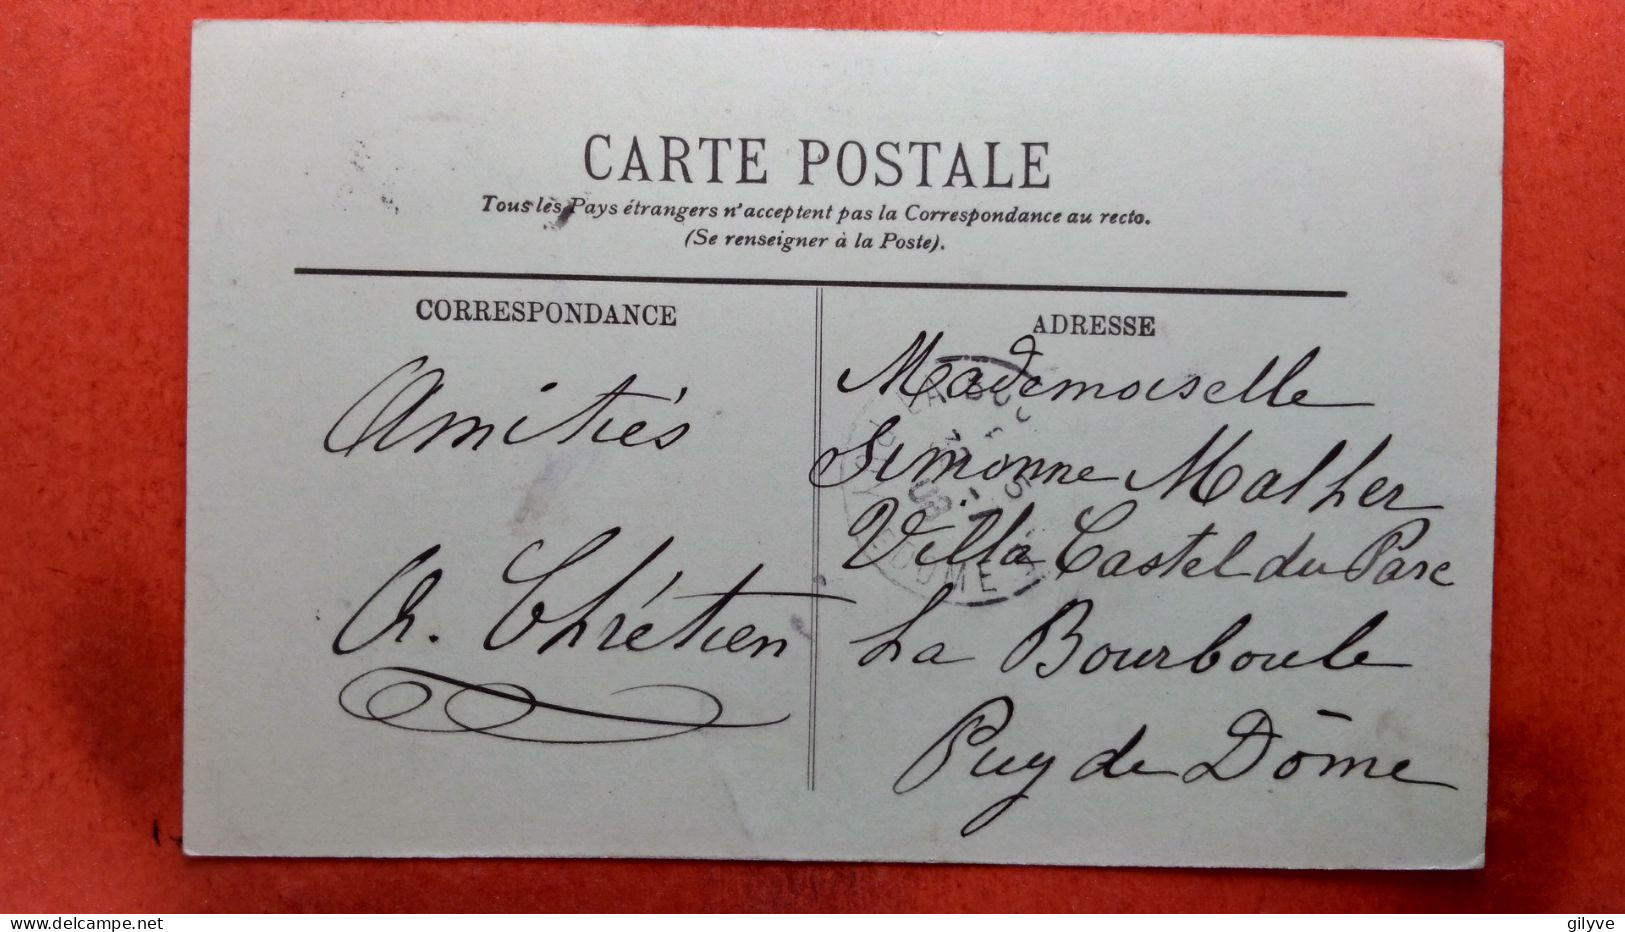 CARTE POSTALE
Tous les Pays étrangers n'acceptent pas la Correspondance au recto.
(Se renseigner à la Poste).
CORRESPONDANCE
Amitiés
A. Chrétien
ADRESSE
Mademoiselle
Simonne Malher
Villa Castel du Parc
La Bourboule
Puy de Dôme
gilyve